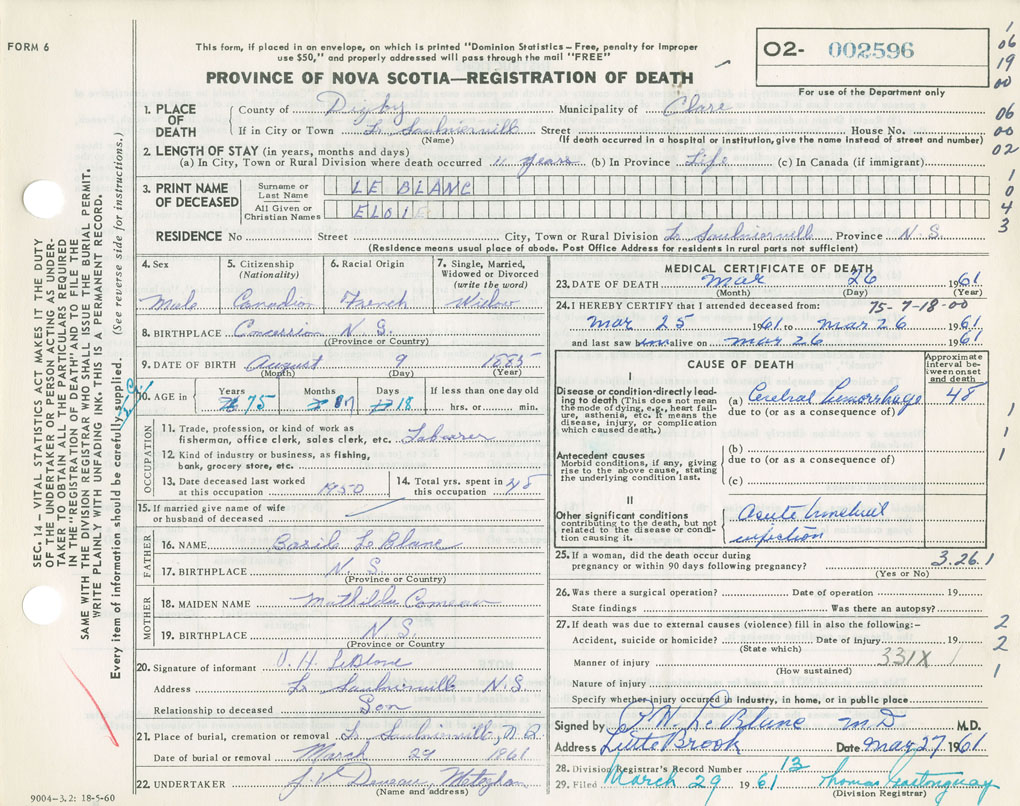 FORM 6
This form, if placed in an envelope, on which is printed "Dominion Statistics – Free, penalty for improper
use $50," and properly addressed will pass through the mail "FREE"
O2- 002596
For use of the Department only
PROVINCE OF NOVA SCOTIA—REGISTRATION OF DEATH
1. PLACE OF DEATH
County of Digby Municipality of Clare
If in City or Town L. Saulnierville Street House No.
(Name) (If death occurred in a hospital or institution, give the name instead of street and number)
2. LENGTH OF STAY (in years, months and days)
(a) In City, Town or Rural Division where death occurred 11 years (b) In Province Life (c) In Canada (if immigrant)
3. PRINT NAME OF DECEASED
Surname or Last Name LE BLANC
All Given or Christian Names ELOIE
RESIDENCE No Street City, Town or Rural Division L. Saulnierville Province N.S.
(Residence means usual place of abode. Post Office Address for residents in rural parts not sufficient)
4. Sex Male
5. Citizenship (Nationality) Canadian
6. Racial Origin French
7. Single, Married, Widowed or Divorced (write the word) Widow
8. BIRTHPLACE Concession N.S.
(Province or Country)
9. DATE OF BIRTH August 9 1885
(Month) (Day) (Year)
10. AGE in Years 75 Months 7 Days 18 If less than one day old
hrs. or min.
OCCUPATION
11. Trade, profession, or kind of work as
fisherman, office clerk, sales clerk, etc. Labourer
12. Kind of industry or business, as fishing,
bank, grocery store, etc.
13. Date deceased last worked
at this occupation 1950
14. Total yrs. spent in
this occupation 45
15. If married give name of wife
or husband of deceased
FATHER
16. NAME Basile Le Blanc
17. BIRTHPLACE N.S.
(Province or Country)
MOTHER
18. MAIDEN NAME Mathilda Comeau
19. BIRTHPLACE N.S.
(Province or Country
20. Signature of informant J. H. LeBlanc
Address L. Saulnierville N.S.
Relationship to deceased Son
21. Place of burial, cremation or removal L. Saulnierville, N.S.
Date of burial or removal March 29 1961
22. UNDERTAKER J. V. Deveau, Meteghan
(Name and address)
9004–3.2: 18-5-60
MEDICAL CERTIFICATE OF DEATH
23. DATE OF DEATH Mar 26 1961
(Month) (Day) (Year)
24. I HEREBY CERTIFY that I attended deceased from: 75-7-18-00
Mar 25 1961 to Mar 26 1961
and last saw him alive on Mar 26 1961
CAUSE OF DEATH
Approximate interval between onset and death
I
Disease or condition directly leading to death (This does not mean the mode of dying, e.g., heart failure, asthenia, etc. It means the disease, injury, or complication which caused death.)
(a) Cerebral hemorrhage 48
due to (or as a consequence of)
Antecedent causes
Morbid conditions, if any, giving rise to the above cause, stating the underlying condition last.
(b)
due to (or as a consequence of)
(c)
II
Other significant conditions
contributing to the death, but not related to the disease or condition causing it.
Acute bronchial
infection
25. If a woman, did the death occur during
pregnancy or within 90 days following pregnancy? 3.26.1
(Yes or No)
26. Was there a surgical operation? Date of operation 19
State findings Was there an autopsy?
27. If death was due to external causes (violence) fill in also the following:–
Accident, suicide or homicide? Date of injury 19
(State which)
Manner of injury 331X
(How sustained)
Nature of injury
Specify whether injury occurred in industry, in home, or in public place
Signed by P. W. Le Blanc M.D. M.D.
Address Little Brook Date Mar 27 1961
28. Division Registrar's Record Number 13
29. Filed March 29 1961 Thomas Gastonguay
(Division Registrar)
SEC. 14 – VITAL STATISTICS ACT MAKES IT THE DUTY
OF THE UNDERTAKER OR PERSON ACTING AS UNDER-
TAKER TO OBTAIN ALL THE PARTICULARS REQUIRED
IN THE "REGISTRATION OF DEATH" AND TO FILE THE
SAME WITH THE DIVISION REGISTRAR WHO SHALL ISSUE THE BURIAL PERMIT.
WRITE PLAINLY WITH UNFADING INK. THIS IS A PERMANENT RECORD.
Every item of information should be carefully supplied. (See reverse side for instructions.)
1
06
19
00
06
00
02
1
0
4
3
1
1
1
2
2
1